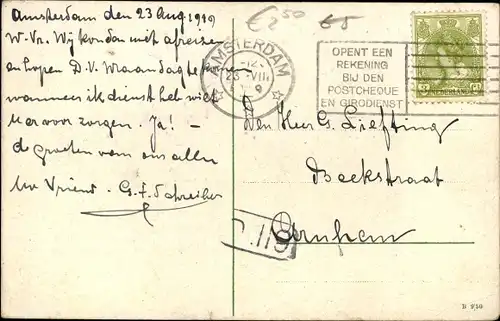 Amsterdam den 23 Aug. 1919
W. Vr. Wij konden niet afreizen
en hopen D.V. Maandag te
wanneer ik dienst heb niet
er voor zorgen. Ja! –
de groeten van ons allen
Uw Vriend. G. F. Schreiber
€2.50
€5
AMSTERDAM
23 VIII
OPENT EEN
REKENING
BIJ DEN
POSTCHEQUE
EN GIRODIENST
Den Heer G. Liefting
Beekstraat
Arnhem